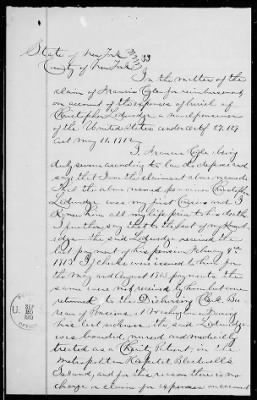 State of New York
County of New York } ss
In the matter of the
claim of Francis for reimbursement
on account of the expenses of burial of
Christopher Ledwidge a pensioner
of the United States under
act May 11. 1912
I Francis being
duly sworn according to law do depose and
say that I am the claimant above named
that the above named pensioner Christopher
Ledwidge was my first Cousin and I
knew him all my life prior to his death
I further say that to the best of my
the said Ledwidge received
last payment of his pension February 4th
1913 If checks were issued to him for
the May and August 1913 payments the
same were not received by him but were
returned to the Disbursing Clerk Bu-
reau of Pensions at Washington. During
his last sickness the said Ledwidge
was boarded, nursed and medically
treated as a Charity Patient, in the
Metropolitan Hospital Blackwell's
Island, and for this reason there is no
charge or claim for expenses on account